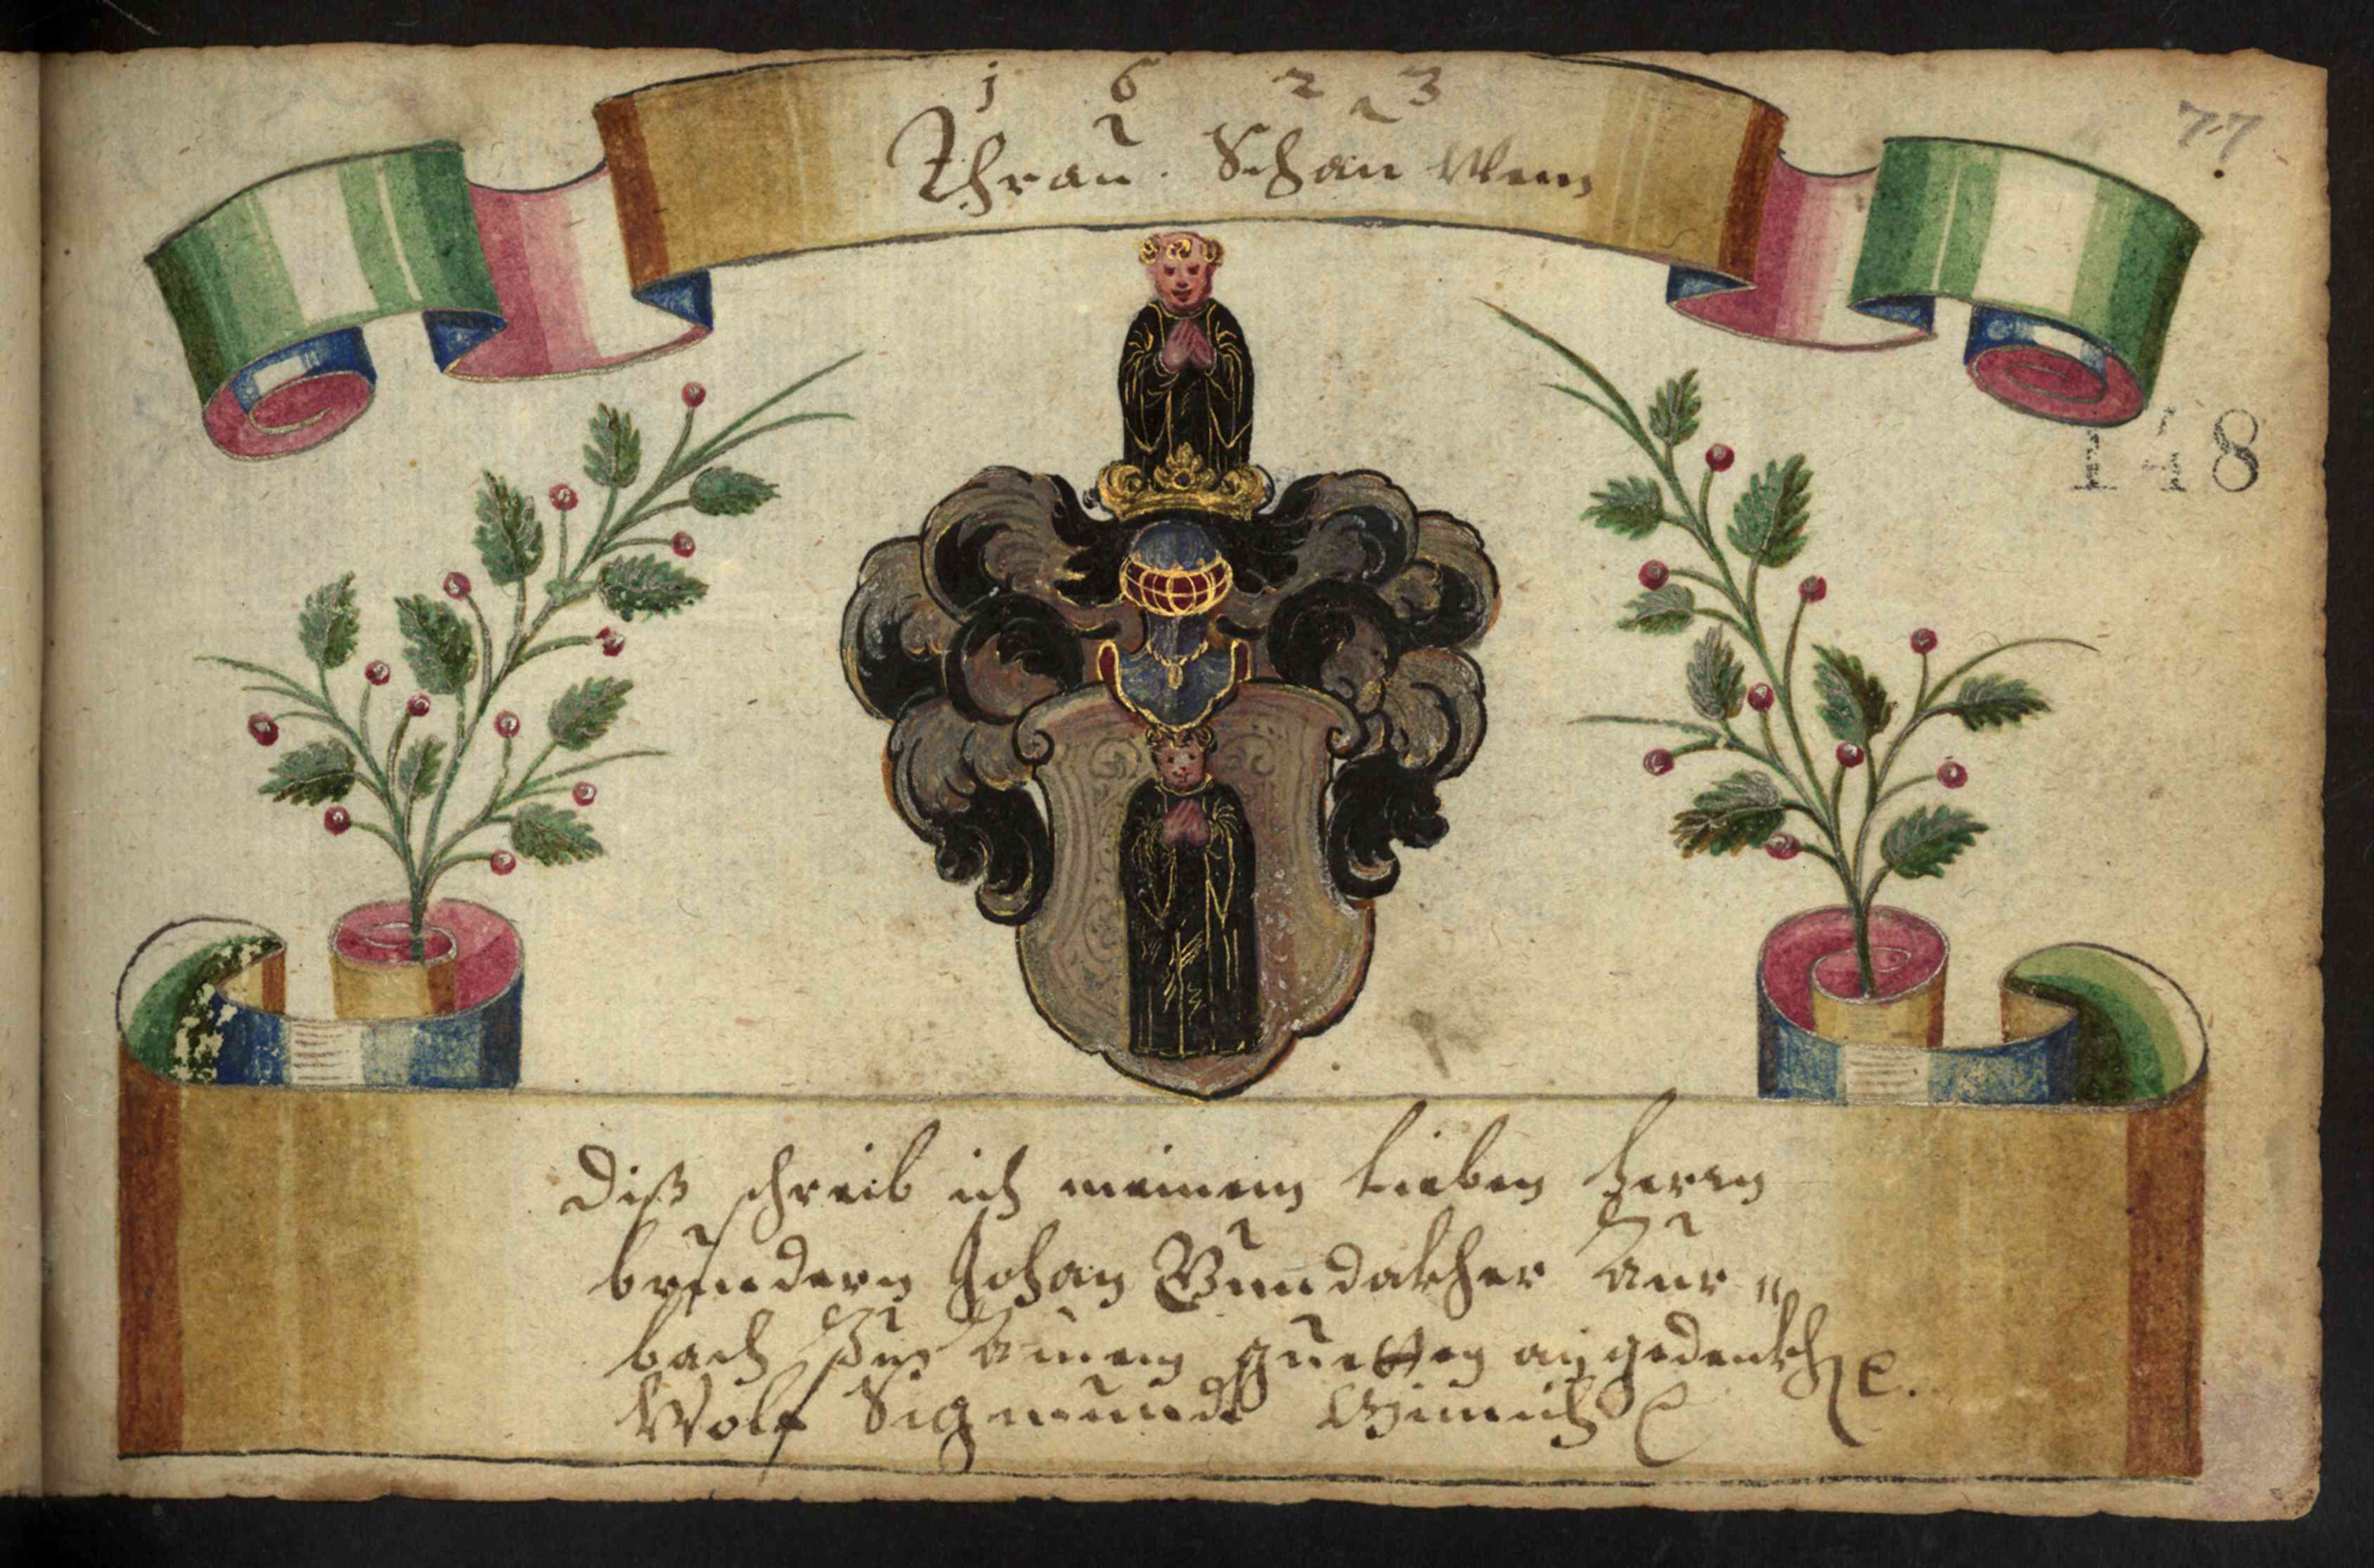 1 6 2 3
77
Thrau. Schau Wem
148
Diß schreib ich meinem lieben herrn
bruedern Johan Gundakher Aur„
bach Zu Ainem guetten angedenkh
Wolf Sigmundt